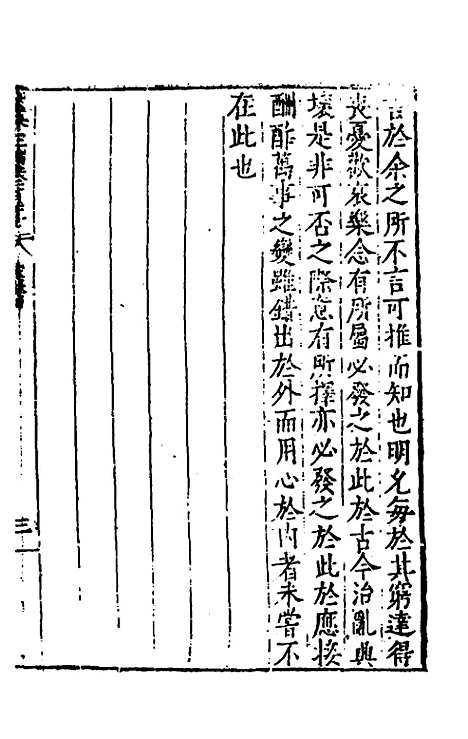 言於余之所不言可推而知也明允每於其窮達得
喪憂歡哀樂念有所屬必發之於此於古今治亂興
壞是非可否之際意有所擇亦必發之於此於應接
酬酢萬事之變雖錯出於外而用心於內者未嘗不
在此也
三